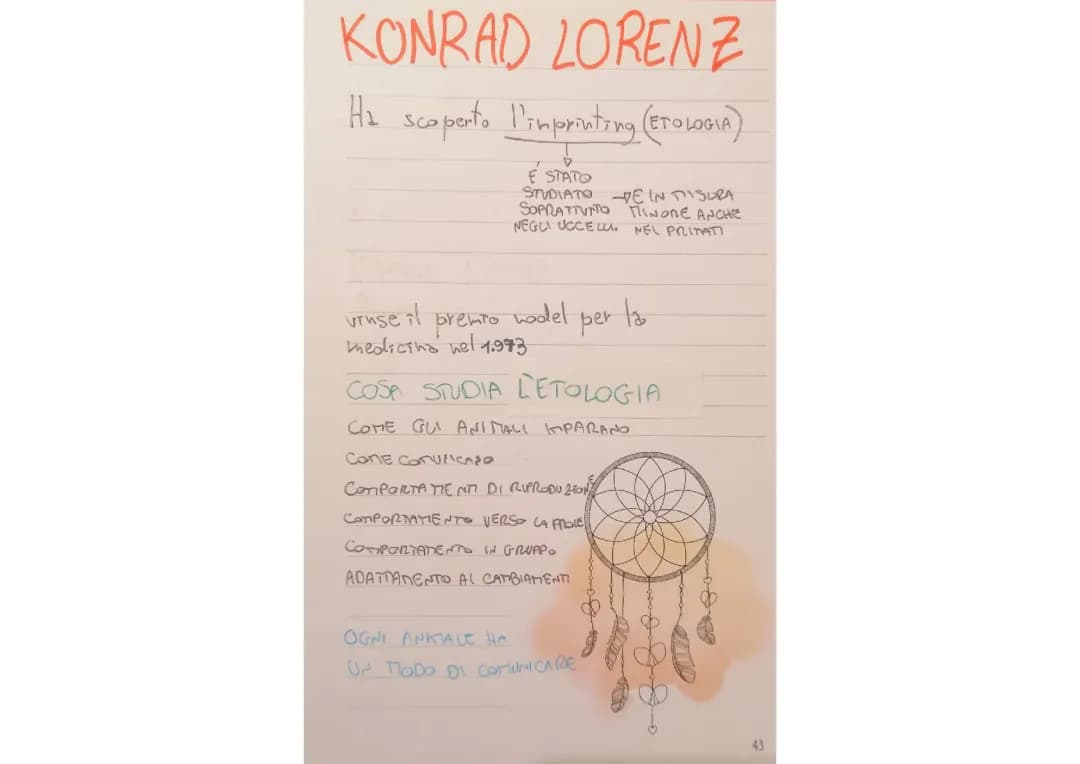 KONRAD LORENZ
Ha scoperto l'imprinting (ETOLOGIA)
É STATO
STUDIATO → E IN MISURA
SOPRATTUTTO MINORE ANCHE
NEGLI UCCELLI. NEL PRIMATI
vinse il premio nodel per la
medicina nel 1.973
COSA STUDIA L'ETOLOGIA
COME GLI ANIMALI IMPARANO
COME COMUNICANO
COMPORTAMENTI DI RIPRODUZIONE
COMPORTAMENTO VERSO LA PROLE
COMPORTAMENTO IN GRUPPO
ADATTAMENTO AI CAMBIAMENTI
OGNI ANIMALE HA
UN MODO DI COMUNICARE
43